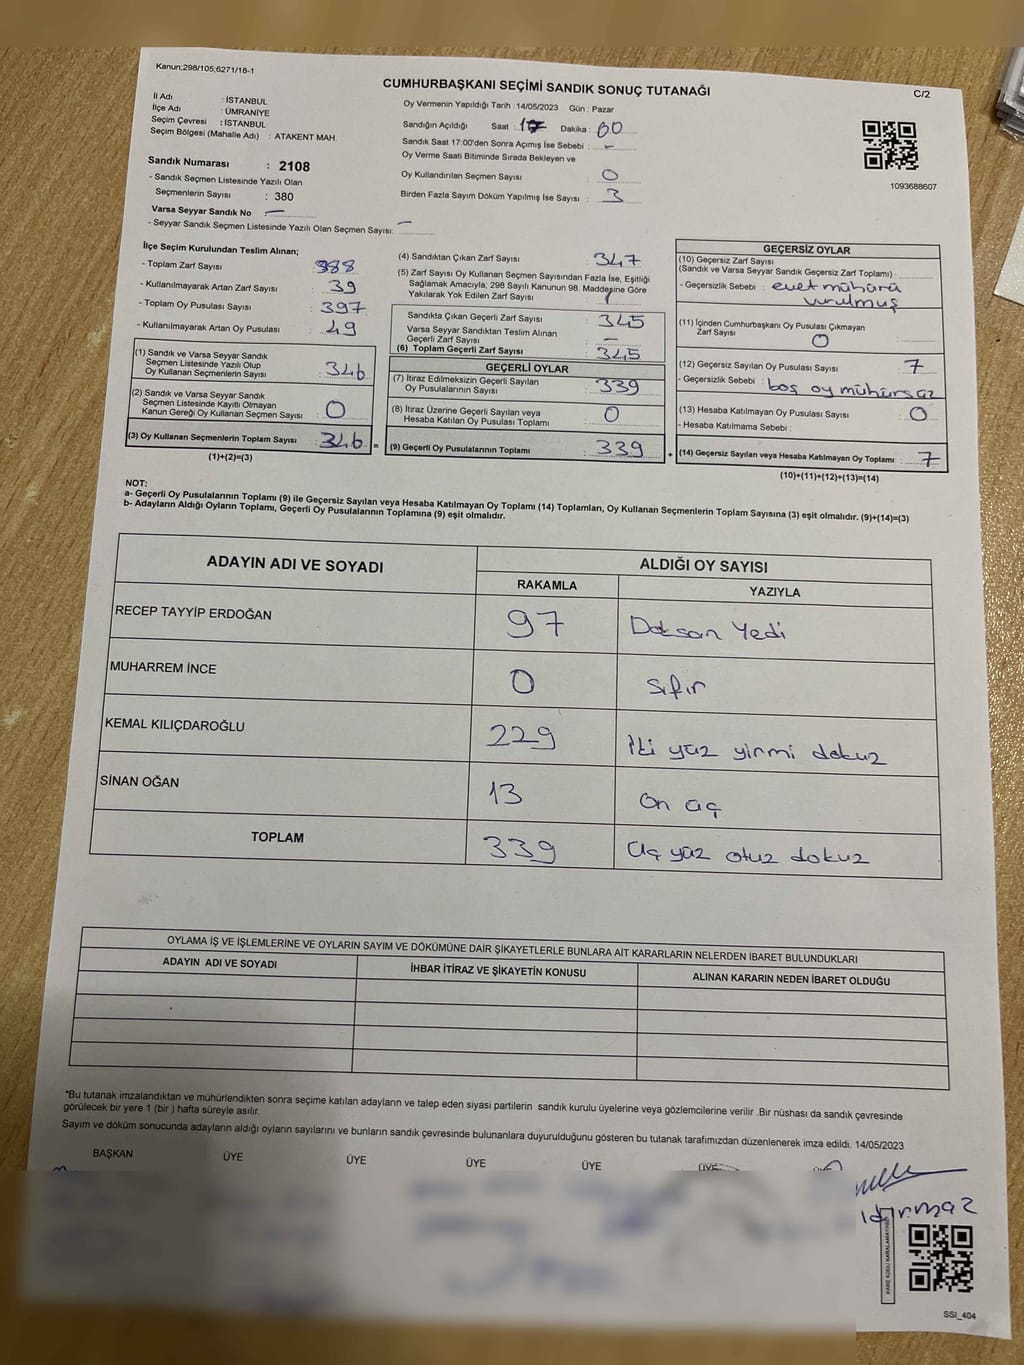 Kanun;298/105;6271/18-1
CUMHURBAŞKANI SEÇİMİ SANDIK SONUÇ TUTANAĞI
C/2
İl Adı : İSTANBUL
İlçe Adı : ÜMRANİYE
Seçim Çevresi : İSTANBUL
Seçim Bölgesi (Mahalle Adı) : ATAKENT MAH.
Sandık Numarası : 2108
- Sandık Seçmen Listesinde Yazılı Olan
Seçmenlerin Sayısı : 380
Varsa Seyyar Sandık No : —
- Seyyar Sandık Seçmen Listesinde Yazılı Olan Seçmen Sayısı: —
Oy Vermenin Yapıldığı Tarih : 14/05/2023 Gün : Pazar
Sandığın Açıldığı Saat : 17 Dakika : 00
Sandık Saat 17:00'den Sonra Açımış İse Sebebi : -
Oy Verme Saati Bitiminde Sırada Bekleyen ve
Oy Kullandırılan Seçmen Sayısı : 0
Birden Fazla Sayım Döküm Yapılmış İse Sayısı : 3
1093688607
İlçe Seçim Kurulundan Teslim Alınan;
- Toplam Zarf Sayısı : 388
- Kullanılmayarak Artan Zarf Sayısı : 39
- Toplam Oy Pusulası Sayısı : 397
- Kullanılmayarak Artan Oy Pusulası : 49
(1) Sandık ve Varsa Seyyar Sandık
Seçmen Listesinde Yazılı Olup
Oy Kullanan Seçmenlerin Sayısı : 346
(2) Sandık ve Varsa Seyyar Sandık
Seçmen Listesinde Kayıtlı Olmayan
Kanun Gereği Oy Kullanan Seçmen Sayısı : 0
(3) Oy Kullanan Seçmenlerin Toplam Sayısı : 346 =
(1)+(2)=(3)
(4) Sandıktan Çıkan Zarf Sayısı : 347
(5) Zarf Sayısı Oy Kullanan Seçmen Sayısından Fazla İse, Eşitliği
Sağlamak Amacıyla, 298 Sayılı Kanunun 98. Maddesine Göre
Yakılarak Yok Edilen Zarf Sayısı : 1
Sandıkta Çıkan Geçerli Zarf Sayısı : 345
Varsa Seyyar Sandıktan Teslim Alınan
Geçerli Zarf Sayısı : -
(6) Toplam Geçerli Zarf Sayısı : 345
GEÇERLİ OYLAR
(7) İtiraz Edilmeksizin Geçerli Sayılan
Oy Pusulalarının Sayısı : 339
(8) İtiraz Üzerine Geçerli Sayılan veya
Hesaba Katılan Oy Pusulası Toplamı : 0
(9) Geçerli Oy Pusulalarının Toplamı : 339 +
GEÇERSİZ OYLAR
(10) Geçersiz Zarf Sayısı
(Sandık ve Varsa Seyyar Sandık Geçersiz Zarf Toplamı) :
- Geçersizlik Sebebi : evet mührü
vurulmuş
(11) İçinden Cumhurbaşkanı Oy Pusulası Çıkmayan
Zarf Sayısı : 0
(12) Geçersiz Sayılan Oy Pusulası Sayısı : 7
- Geçersizlik Sebebi : boş oy mühürsaz
(13) Hesaba Katılmayan Oy Pusulası Sayısı : 0
- Hesaba Katılmama Sebebi :
(14) Geçersiz Sayılan veya Hesaba Katılmayan Oy Toplamı : 7
(10)+(11)+(12)+(13)=(14)
NOT:
a- Geçerli Oy Pusulalarının Toplamı (9) ile Geçersiz Sayılan veya Hesaba Katılmayan Oy Toplamı (14) Toplamları, Oy Kullanan Seçmenlerin Toplam Sayısına (3) eşit olmalıdır. (9)+(14)=(3)
b- Adayların Aldığı Oyların Toplamı, Geçerli Oy Pusulalarının Toplamına (9) eşit olmalıdır.
ADAYIN ADI VE SOYADI
ALDIĞI OY SAYISI
RAKAMLA YAZIYLA
RECEP TAYYİP ERDOĞAN 97 Doksan Yedi
MUHARREM İNCE 0 Sıfır
KEMAL KILIÇDAROĞLU 229 İki yüz yirmi dokuz
SİNAN OĞAN 13 On üç
TOPLAM 339 Üç yüz otuz dokuz
OYLAMA İŞ VE İŞLEMLERİNE VE OYLARIN SAYIM VE DÖKÜMÜNE DAİR ŞİKAYETLERLE BUNLARA AİT KARARLARIN NELERDEN İBARET BULUNDUKLARI
ADAYIN ADI VE SOYADI İHBAR İTİRAZ VE ŞİKAYETİN KONUSU ALINAN KARARIN NEDEN İBARET OLDUĞU
*Bu tutanak imzalandıktan ve mühürlendikten sonra seçime katılan adayların ve talep eden siyasi partilerin sandık kurulu üyelerine veya gözlemcilerine verilir .Bir nüshası da sandık çevresinde
görülecek bir yere 1 (bir ) hafta süreyle asılır.
Sayım ve döküm sonucunda adayların aldığı oyların sayılarını ve bunların sandık çevresinde bulunanlara duyurulduğunu gösteren bu tutanak tarafımızdan düzenlenerek imza edildi. 14/05/2023
BAŞKAN ÜYE ÜYE ÜYE ÜYE ÜYE
KARE KODU KARALAMAYINIZ
SSI_404